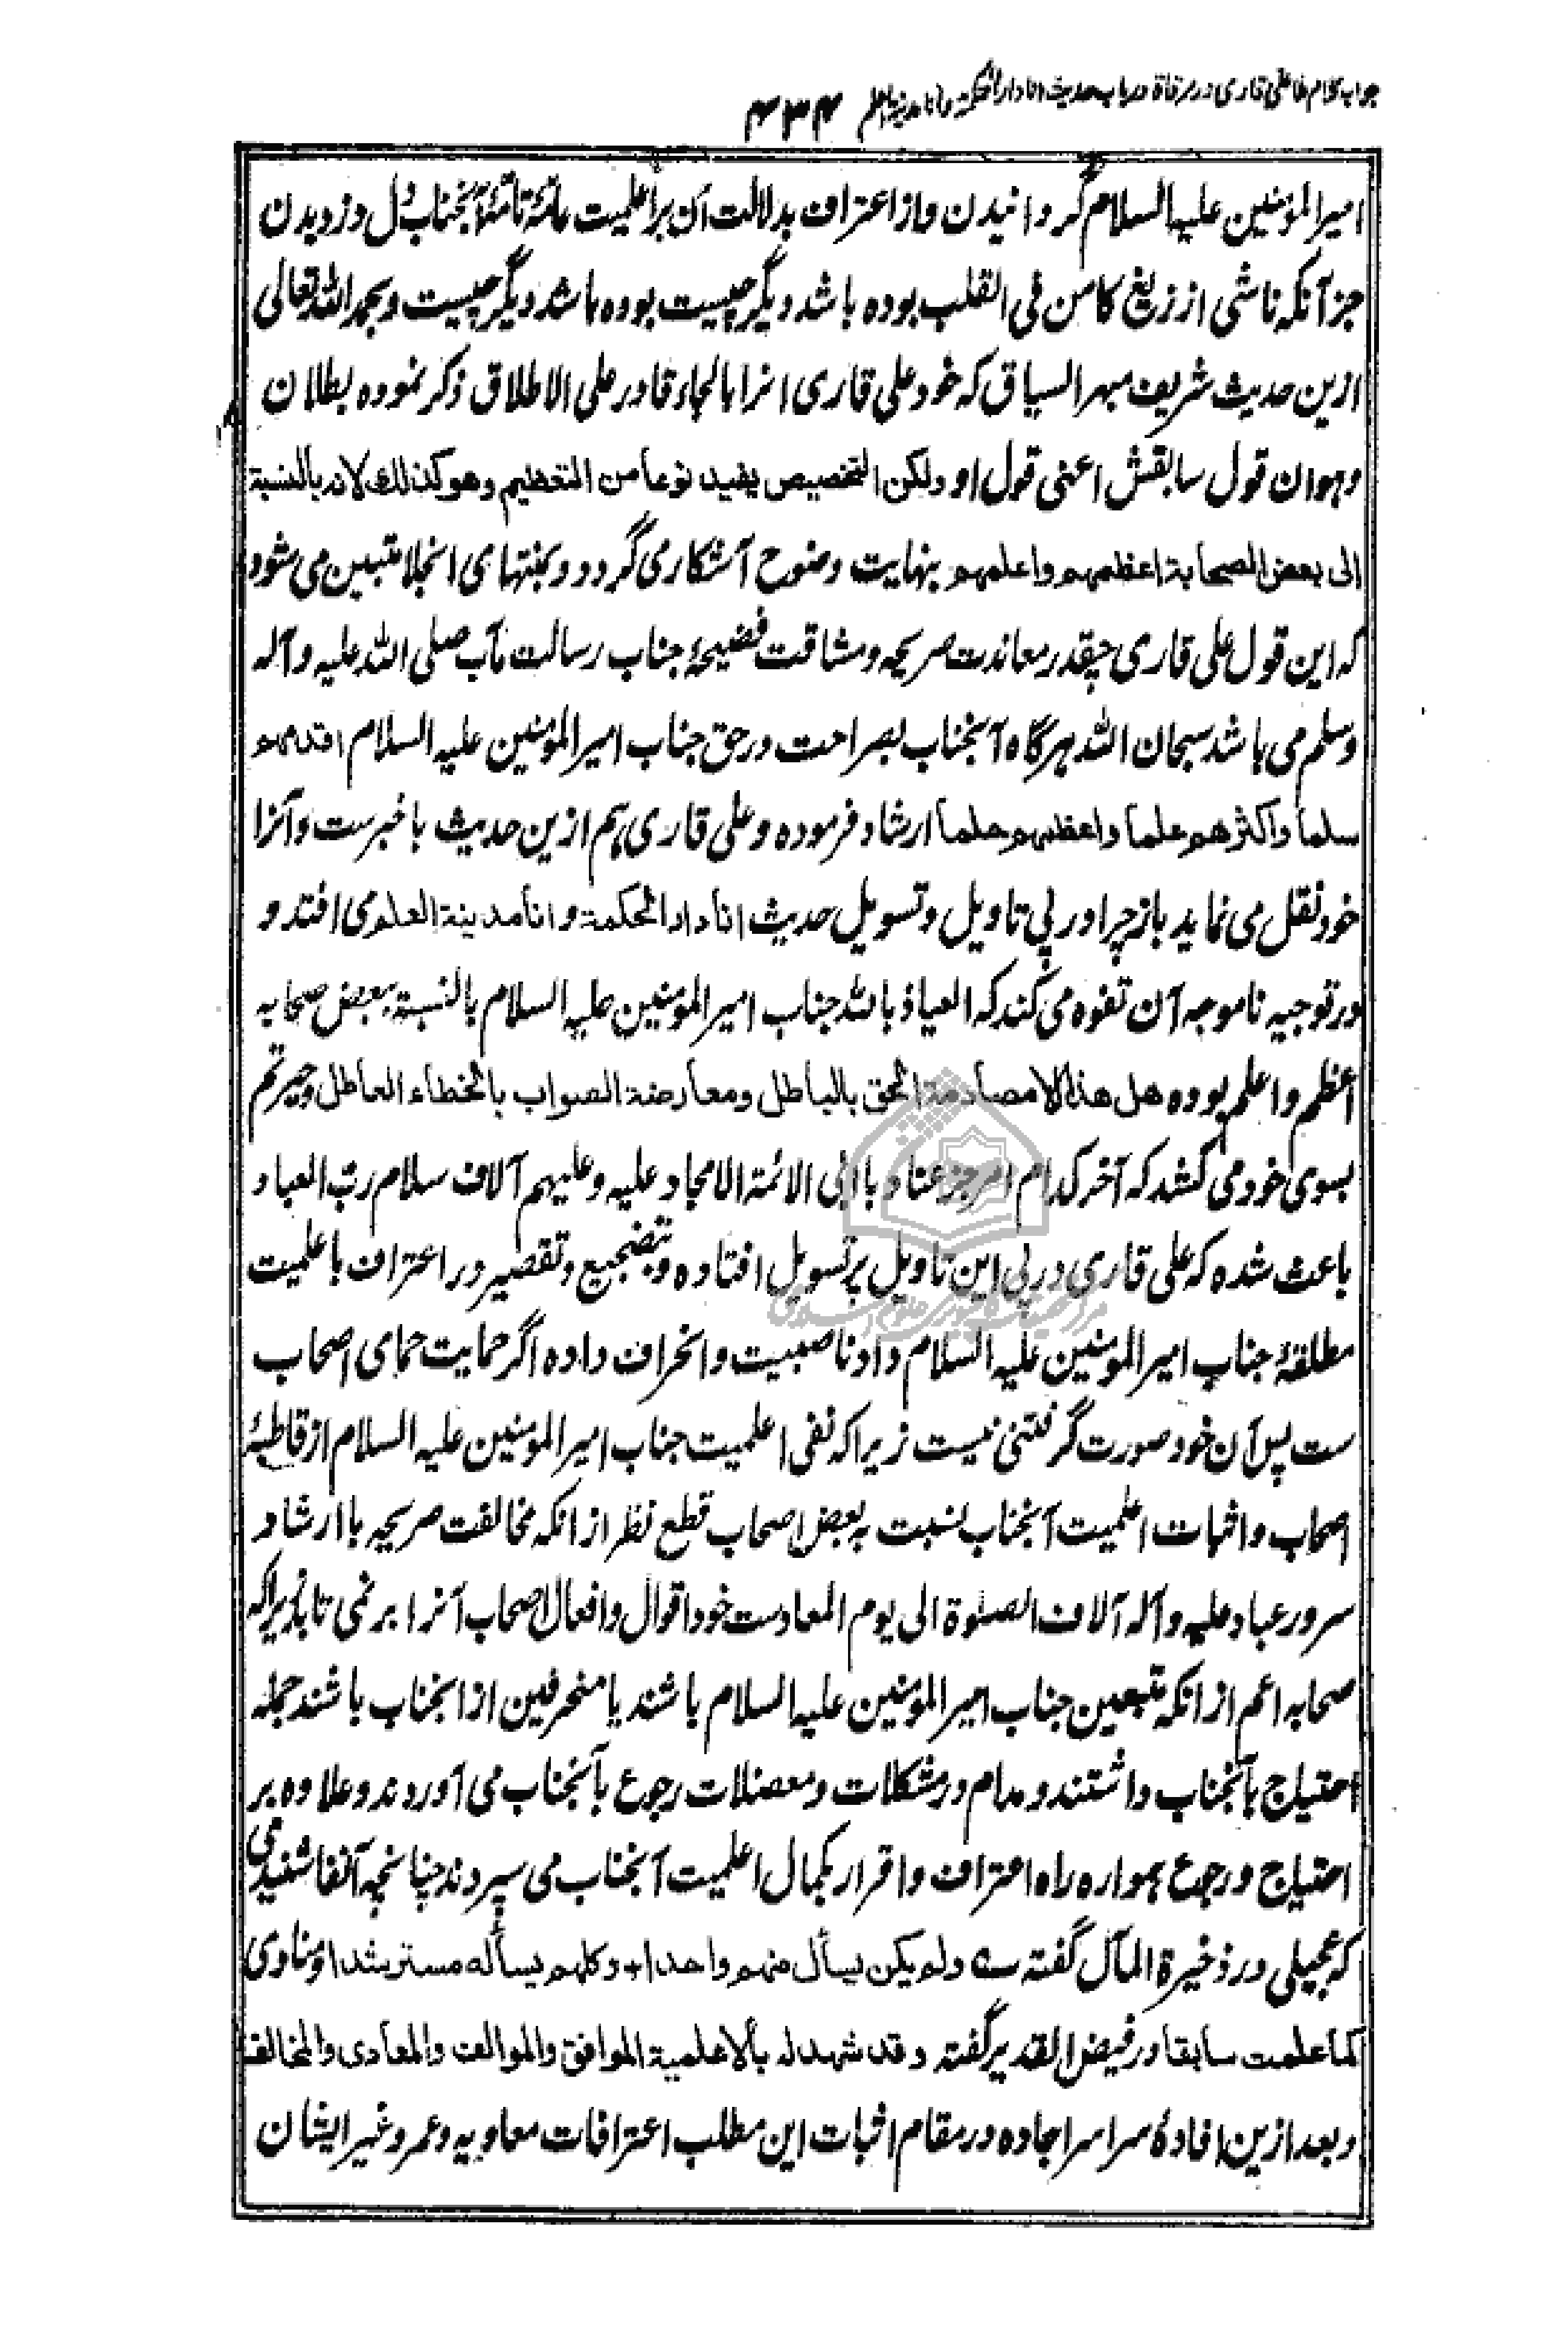 جواب کلام ملا علی قاری در مرقاة در باب حدیث انا دار الحکمة و انا مدینة العلم ۴۳۴
امیر المؤمنین علیه السلام گردانیدن و از اعتراف بدلالت آن بر اعلمیت عامّهٔ تامّهٔ آنجناب دل دزدیدن
جز آنکه ناشی از زیغ کامن فی القلب بوده باشد دیگر چیست بوده باشد دیگر چیست و بحمد الله تعالی
ازین حدیث شریف مبهر السیاق که خود علی قاری انرا بالجاء قادر علی الاطلاق ذکر نموده بطلان
وهوان قول سابقش اعنی قول او ولکن التخصیص یفید نوعا من التعظیم وهو کذلک لانه بالنسبة
الی بعض الصحابة اعظمهم واعلمهم بنهایت وضوح آشکار می گردد و بمنتهای انجلا متبین می شود
که این قول علی قاری چقدر معاندت صریحه و مشاقت فضیحهٔ جناب رسالت مآب صلی الله علیه و آله
وسلم می باشد سبحان الله هرگاه آنجناب بصراحت در حق جناب امیر المؤمنین علیه السلام اقدمهم
سلما واکثرهم علما واعظمهم حلما ارشاد فرموده و علی قاری هم ازین حدیث با خبر ست و آنرا
خود نقل می نماید باز چرا در پی تاویل و تسویل حدیث انا دار الحکمة و انا مدینة العلم می افتد و
در توجیه ناموجه آن تفوه می کند که العیاذ بالله جناب امیر المؤمنین علیه السلام بالنسبة ببعض صحابه
اعظم و اعلم بوده هل هذا الا مصادمة الحق بالباطل ومعارضة الصواب بالخطاء العاطل و حیرتم
بسوی خود می کشد که آخر کدام امر جز عناد با ابی الائمة الامجاد علیه وعلیهم آلاف سلام رب العباد
باعث شده که علی قاری در پی این تاویل پر تسویل افتاده و بتضجیع و تقصیر در اعتراف باعلمیت
مطلقهٔ جناب امیر المؤمنین علیه السلام داد ناصبیت و انحراف داده اگر حمایت حمای اصحاب
ست پس آن خود صورت گرفتنی نیست زیرا که نفی اعلمیت جناب امیر المؤمنین علیه السلام از قاطبهٔ
اصحاب و اثبات اعلمیت آنجناب نسبت به بعض اصحاب قطع نظر از انکه مخالفت صریحه با ارشاد
سرور عباد علیه و آله آلاف الصلوة الی یوم المعادست خود اقوال و افعال اصحاب آنرا بر نمی تابد زیراکه
صحابه اعم از انکه متبعین جناب امیر المؤمنین علیه السلام باشند یا منحرفین از انجناب باشند جمله
احتیاج بآنجناب داشتند و مدام در مشکلات و معضلات رجوع بآنجناب می آوردند و علاوه بر
احتیاج و رجوع همواره راه اعتراف و اقرار بکمال اعلمیت آنجناب می سپردند چنانچه آنفا شنیدی
که عجیلی در ذخیرة المآل گفته ولم یکن یسأل منهم واحدا + وکلهم یسأله مسترشدا و مناوی
کما علمت سابقا در فیض القدیر گفته وقد شهد له بالاعلمیة الموافق والموالف والمعادی والمخالف
و بعد ازین افادهٔ سراسر اجاده در مقام اثبات این مطلب اعترافات معاویه و عمر و غیر ایشان